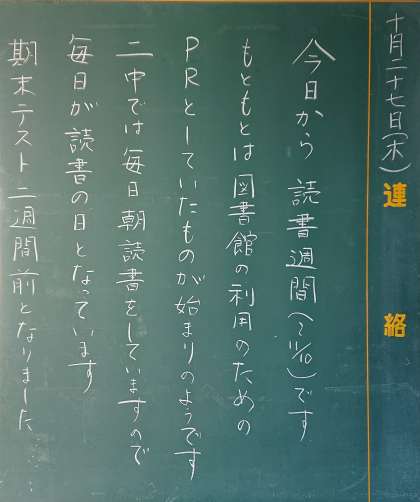 十月二十七日(木)
連絡
今日から 読書週間(~11/10)です
もともとは図書館の利用のための
PRとしていたものが始まりのようです
二中では毎日朝読書をしていますので
毎日が読書の日となっています
期末テスト二週間前となりました……